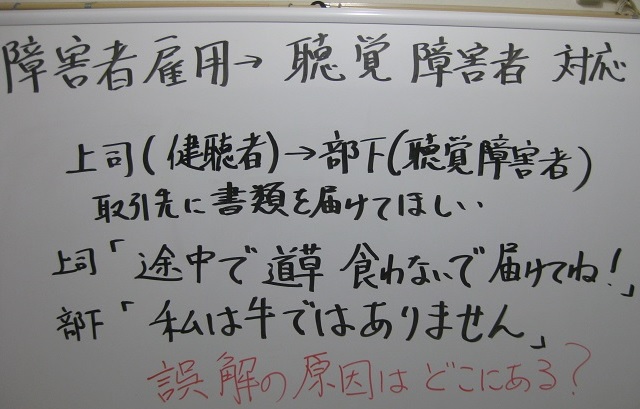 障害者雇用→聴覚障害者対応
上司(健聴者)→部下(聴覚障害者)
取引先に書類を届けてほしい‥
上司「途中で道草食わないで届けてね!」
部下「私は牛ではありません」
誤解の原因はどこにある?